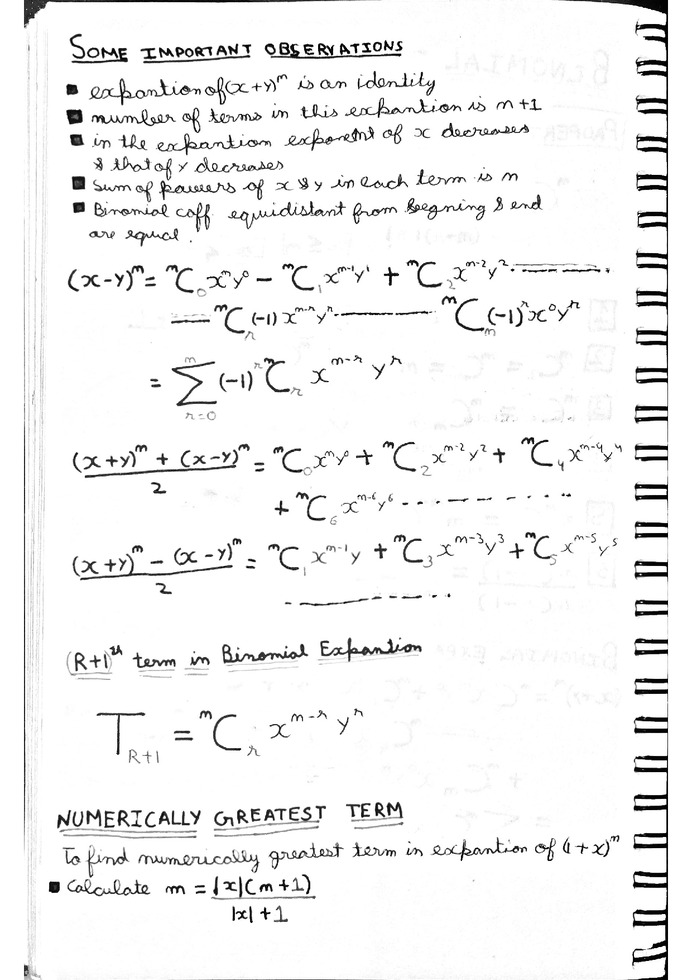 SOME IMPORTANT OBSERVATIONS
■ expantion of (x+y)ⁿ is an identity
■ number of terms in this expantion is n+1
■ in the expantion exponent of x decreases
& that of y decreases
■ Sum of powers of x & y in each term is n
■ Binomial coff equidistant from begning & end
are equal.
(x-y)ⁿ = ⁿC₀xⁿy⁰ - ⁿC₁xⁿ⁻¹y¹ + ⁿC₂xⁿ⁻²y² --------
---- ⁿCᵣ(-1)xⁿ⁻ʳyʳ -------- ⁿCₙ(-1)ʳx⁰yʳ
= ∑ⁿᵣ₌₀ (-1)ʳ ⁿCᵣ xⁿ⁻ʳ yʳ
((x+y)ⁿ + (x-y)ⁿ)/2 = ⁿC₀xⁿy⁰ + ⁿC₂xⁿ⁻²y² + ⁿC₄xⁿ⁻⁴y⁴
+ ⁿC₆xⁿ⁻⁶y⁶ ----------
((x+y)ⁿ - (x-y)ⁿ)/2 = ⁿC₁xⁿ⁻¹y + ⁿC₃xⁿ⁻³y³ + ⁿC₅xⁿ⁻⁵y⁵
----------
(R+1)ᵗʰ term in Binomial Expantion
T_R+1 = ⁿCᵣ xⁿ⁻ʳ yʳ
NUMERICALLY GREATEST TERM
To find numerically greatest term in expantion of (1+x)ⁿ
■ Calculate m = |x|(n+1)/(|x|+1)